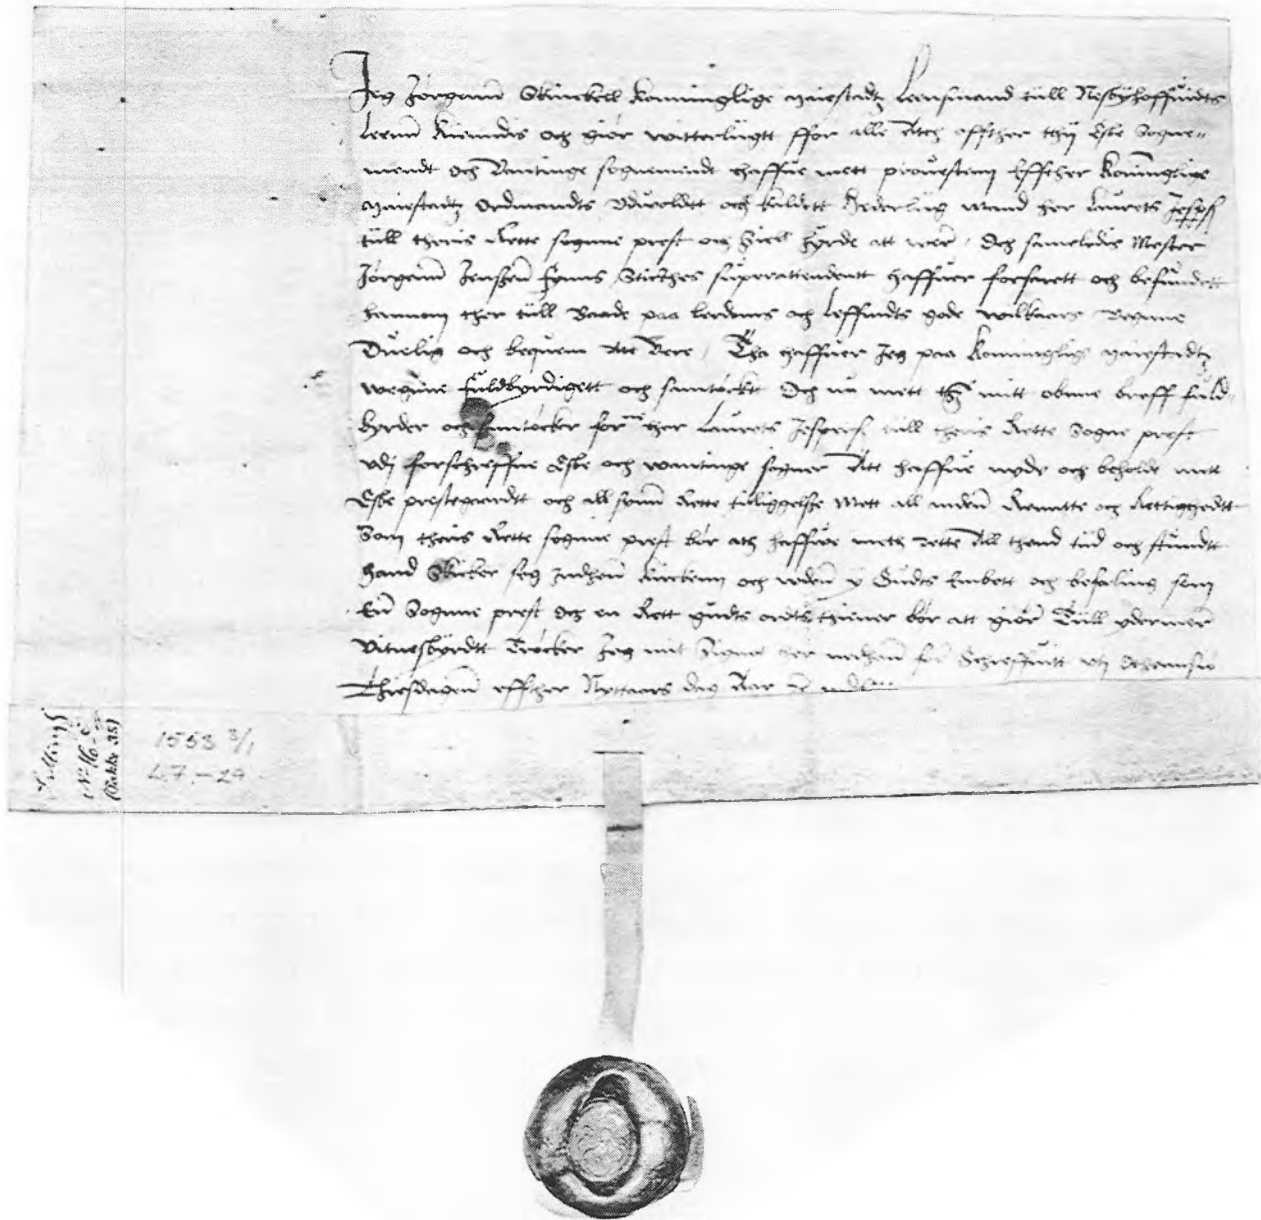 Jeg Jörgenn Skinckell Konninglige Maiestadtz Leensmand tüll Nesbyhoffuidts
Leenn Kiendis och giör witterlügtt ffor alle Atth effther thij Espe Sogne-
mendt och Vantinge sognemendt haffue mett prouestenn Effther Konninglige
Maiestadtz Ordinandts Vduoldtt och kaldett Hederlüg mand her Laurets Jespers
tüll theris Rette sogne prest och Siell hyrde att were, Och sameledis Mester
Jörgenn Jenssenn Fyens Stichtes superattendentt haffuer forfarett och befundett
hannom ther tüll Baade paa lerdoms och Leffindts gode wilkaars Vegnne
Duelig och bequem Att Vere, Tha haffuer Jeg paa Konninglige Maiestadtz
wegnne fuldbyrdigett och samtöcktt Och nu mett thette mitt obnne breff fuld-
byrder och samtöcker for.ne her Laurets Jespers tüll theris Rette Sogne prest
vdj forschreffne Espe och wantinge sogner Att haffue nyde och beholde mett
Espe prestegaardtt och all synn Rette tüliggelsse Mett all anden Rennte och Rettighedtt
Som theris Rette sognne prest bör ath haffue meth rette All thend tüd och stundtt
Hand Skicker seg Indhenn kircken och uden y Gudts Embett och befalüng som
Enn Sognne prest Och en Rett gudts ordts thiener bör att giöre Tüll ydermere
Vitnesbyrdtt Trücker Jeg mit Signet her nedhenn for Schreffuitt vtj Othennsze
Thiesdagenn effther Nyttaars dag Aar
N° 16
(Pakke 35)
1553 3/1
L7.-29